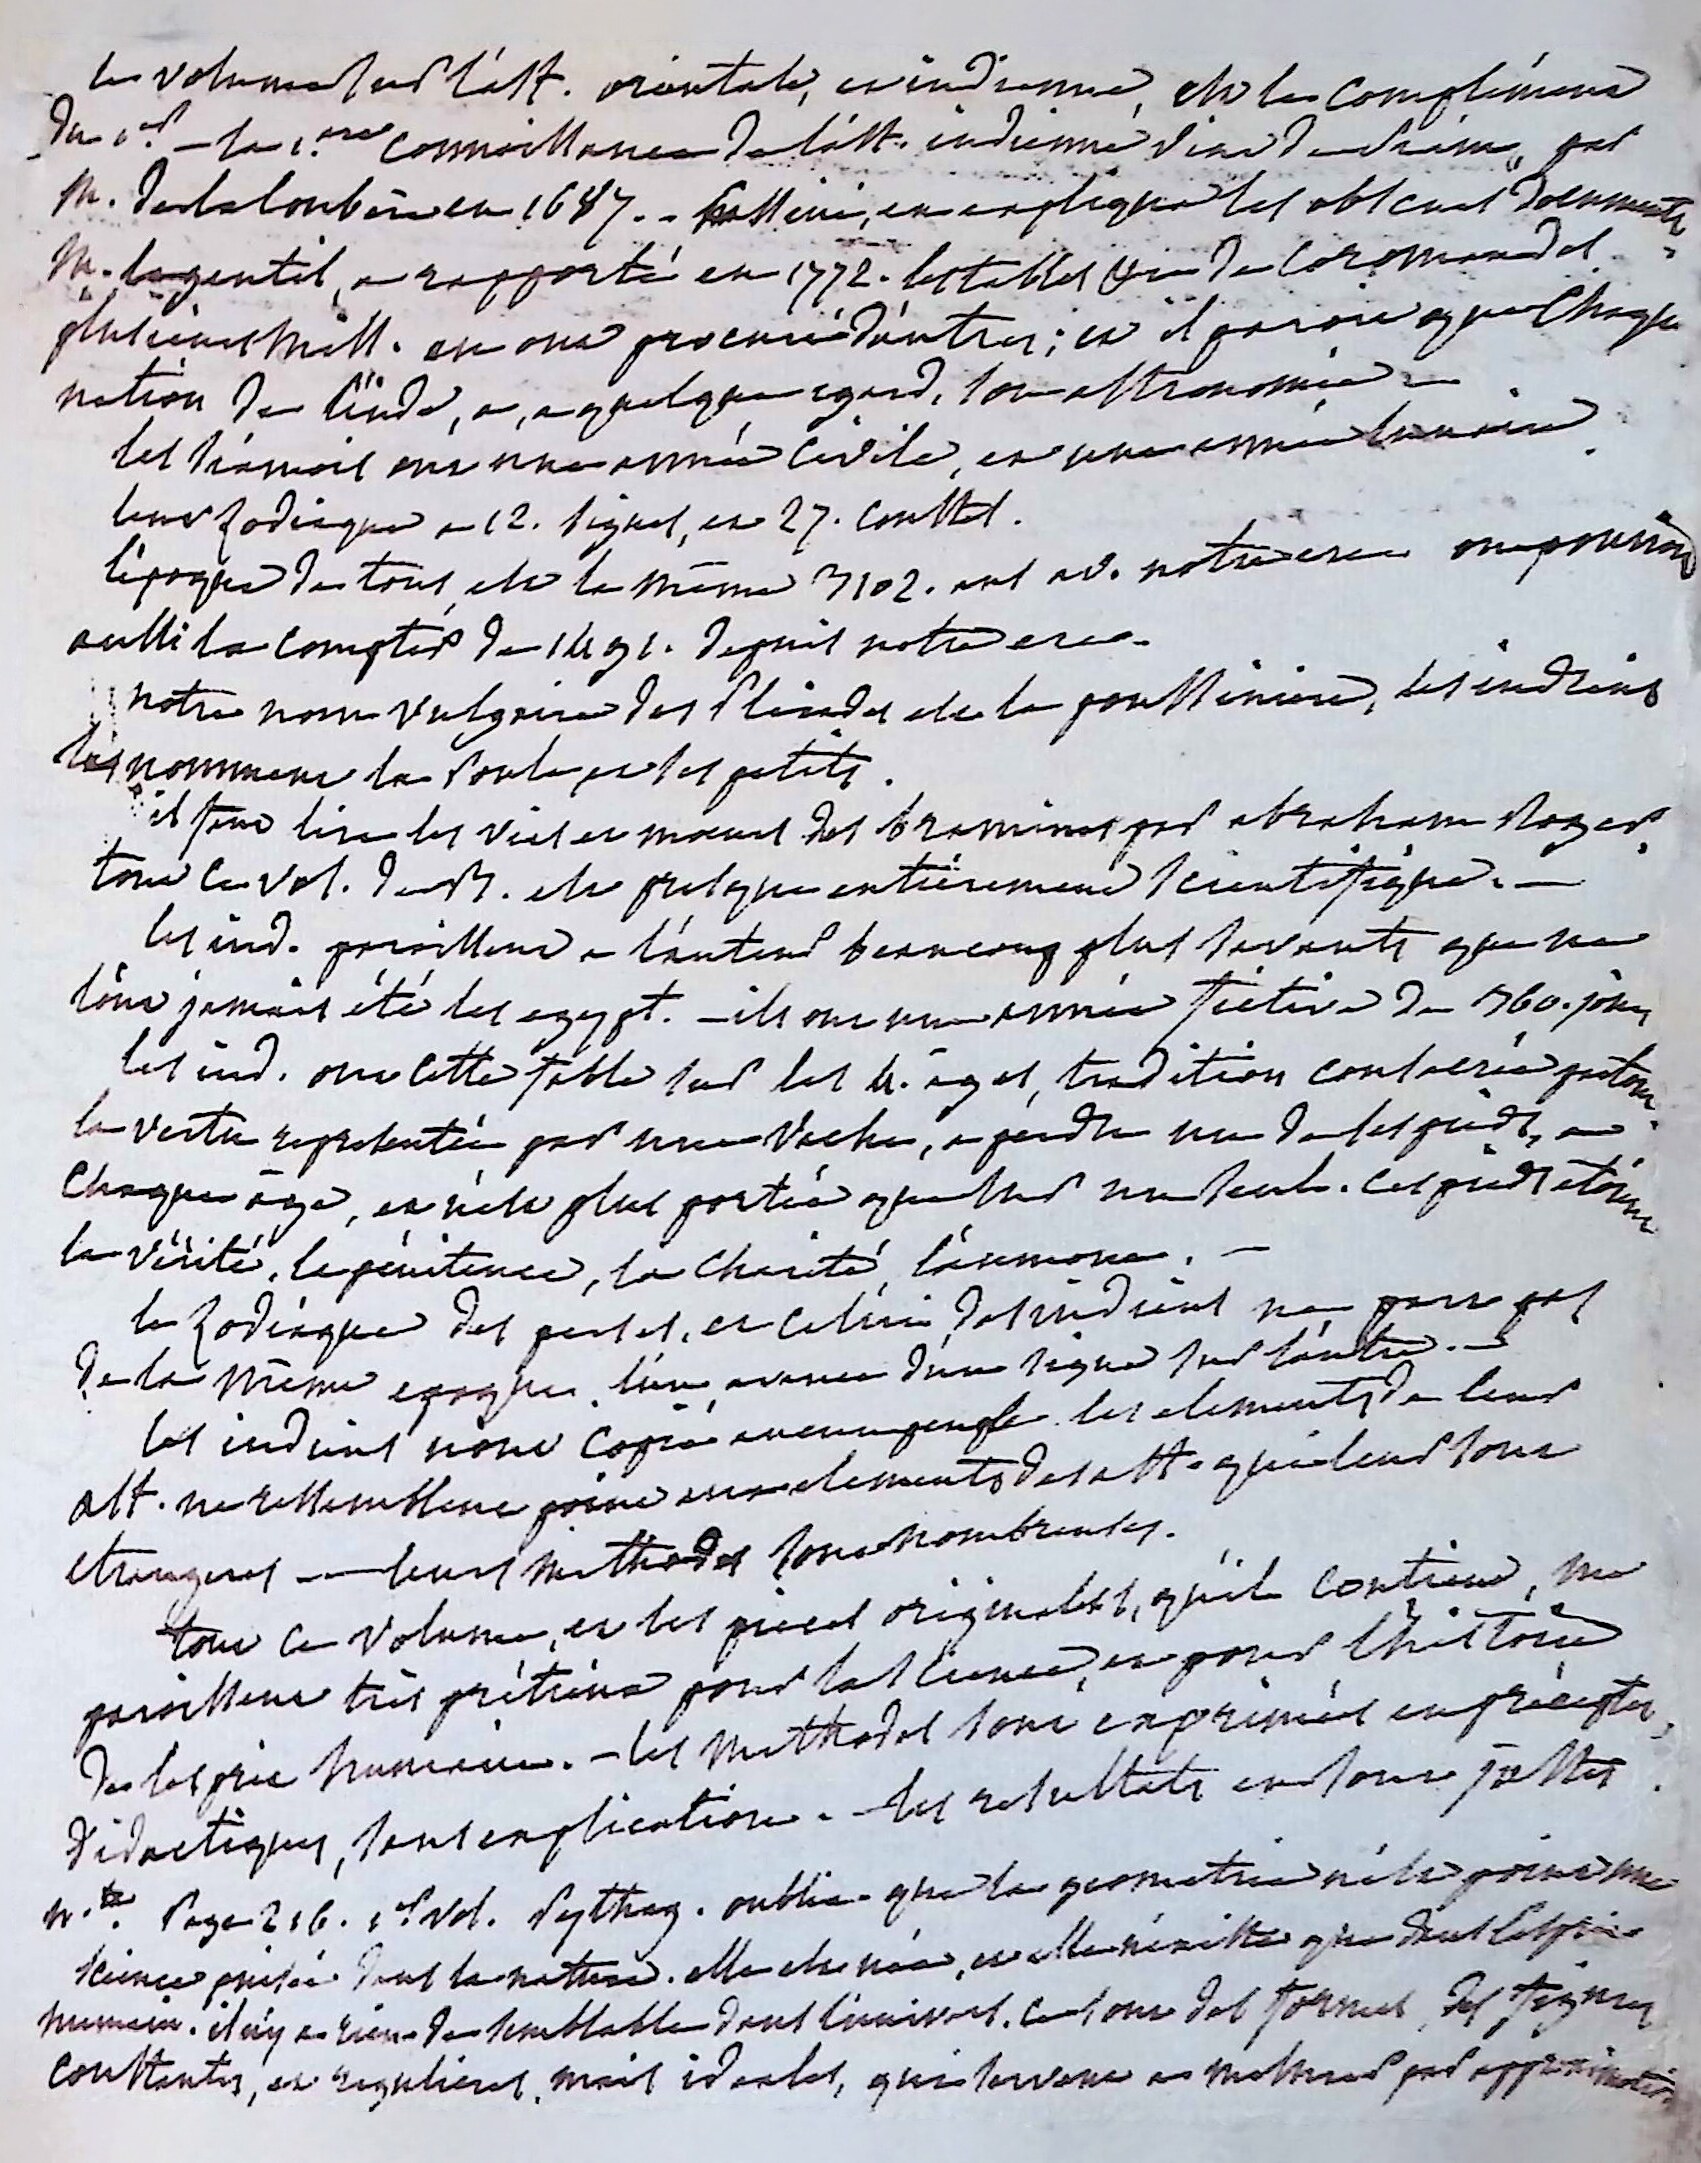 le volume sur l'ast. orientale, et indienne, est le complément
du 1.er — la 1.ere connoissance de l'ast. indienne vint de Siam, par
M. de la loubère en 1687. - Cassini, en expliqua les obscurs documents
M. legentil, a rapporté en 1772. les tables &c de Coromandel.
plusieurs miss. en ont procuré d'autres; et il paroit que chaque
nation de l'inde, a, a quelque egard, son astronomie —
les siamois ont une année civile, et une année lunaire.
leur zodiaque a 12. signes, et 27. constel.
l'époque de tous, est la même 3102. ans av. notre ere on pourroit
aussi la compter de 1491. depuis notre ere.
notre nom vulgaire des Pleiades est la poussiniere, les indiens
les nomment la Poule et les petits.
il faut lire les vies et moeurs des bramines par abraham Roger.
tout ce vol. de B. est presque entièrement scientifique. —
les ind. paroissent a l'auteur beaucoup plus savants que ne
l'ont jamais été les egypt. — ils ont une année fictive de 360. jours
les ind. ont cette fable sur les 4. âges, tradition consacrée partout.
la vertu representée par une vache, a perdu un de ses pieds, a
chaque âge, et n'est plus portée que sur un seul. ces pieds etoient
la vérité, la pénitence, la charité, l'aumone. —
le zodiaque des perses, et celui des indiens ne part pas
de la même epoque. l'un avance d'un signe sur l'autre. —
les indiens n'ont copié aucun peuple. les elements de leur
ast. ne ressemblent point aux elements des ast. qui leur sont
etrangeres — leurs méthodes sont nombreuses.
tout ce volume, et les pieces originales, qu'il contient, me
paroissent très prétieux pour la science, et pour l'histoire
de l'esprit humain. — les methodes sont exprimées en préceptes,
didactiques, sans explication. — les resultats en sont justes.
n.ta. Page 216. 1.er vol. Pythag. oublia que la geometrie n'est point une
science puisée dans la nature. elle est née, et elle n'existe que dans l'esprit
humain. il n'y a rien de semblable dans l'univers. ce sont des formes, des figures
constantes, et regulieres, mais ideales, qui servent a mesurer par approximation